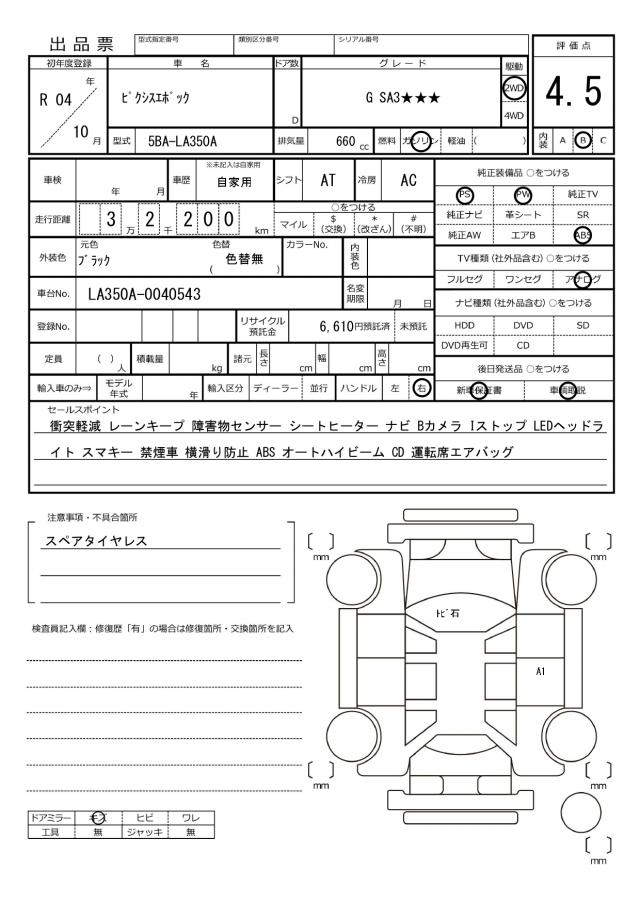 出品票
型式指定番号 類別区分番号 シリアル番号
評価点
4.5
初年度登録 車名 ドア数 グレード 駆動
R 04 年 10 月
ﾋﾟｸｼｽｴﾎﾟｯｸ D G SA3★★★ 2WD 4WD
型式 5BA-LA350A 排気量 660 cc 燃料 ガソリン 軽油 ( )
内装 A B C
車検 年 月 車歴 ※未記入は自家用 自家用 シフト AT 冷房 AC
走行距離 3 万 2 千 2 0 0 km
○をつける
マイル $(交換) *(改ざん) #(不明)
外装色 元色 ﾌﾞﾗｯｸ 色替 ( 色替無 ) カラーNo. 内装色
車台No. LA350A-0040543 名変期限 月 日
登録No. リサイクル預託金 6,610円預託済 未預託
定員 ( )人 積載量 kg 諸元 長さ cm 幅 cm 高さ cm
輸入車のみ⇒ モデル年式 年 輸入区分 ディーラー 並行 ハンドル 左 右
純正装備品 ○をつける
PS PW 純正TV
純正ナビ 革シート SR
純正AW エアB ABS
TV種類(社外品含む)○をつける
フルセグ ワンセグ アナログ
ナビ種類(社外品含む)○をつける
HDD DVD SD
DVD再生可 CD
後日発送品 ○をつける
新車保証書 車輌取説
セールスポイント
衝突軽減 レーンキープ 障害物センサー シートヒーター ナビ Bカメラ Iストップ LEDヘッドラ
イト スマキー 禁煙車 横滑り防止 ABS オートハイビーム CD 運転席エアバッグ
注意事項・不具合箇所
スペアタイヤレス
検査員記入欄：修復歴「有」の場合は修復箇所・交換箇所を記入
〔 〕mm 〔 〕mm
ﾄﾋﾞ石
A1
〔 〕mm 〔 〕mm
〔 〕mm
ドアミラー キズ ヒビ ワレ
工具 無 ジャッキ 無